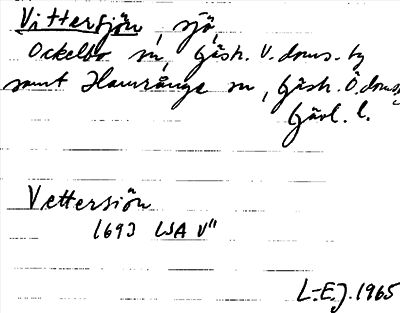 Vittersjön, sjö,
Ockelbo sn, Gästr. V. doms. hg
samt Hamrånge sn, Gästr. Ö. doms.
Gävl. l.
Vettersiön
1693 LSA V"
L-E.J. 1965